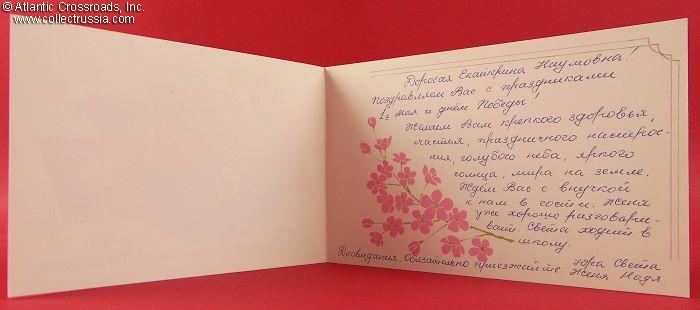 © Atlantic Crossroads, Inc.
www.collectrussia.com
Дорогая Екатерина Наумовна!
Поздравляем Вас с праздниками
1: Мая и днём Победы!
Желаем Вам крепкого здоровья,
счастья, праздничного настрое-
ния, голубого неба, яркого
солнца, мира на земле.
Ждём Вас с внучкой
к нам в гости. Женя
уже хорошо разговари-
вает. Света ходит в
школу.
Досвидания. Обязательно приезжайте. Юра Света
Женя Надя.